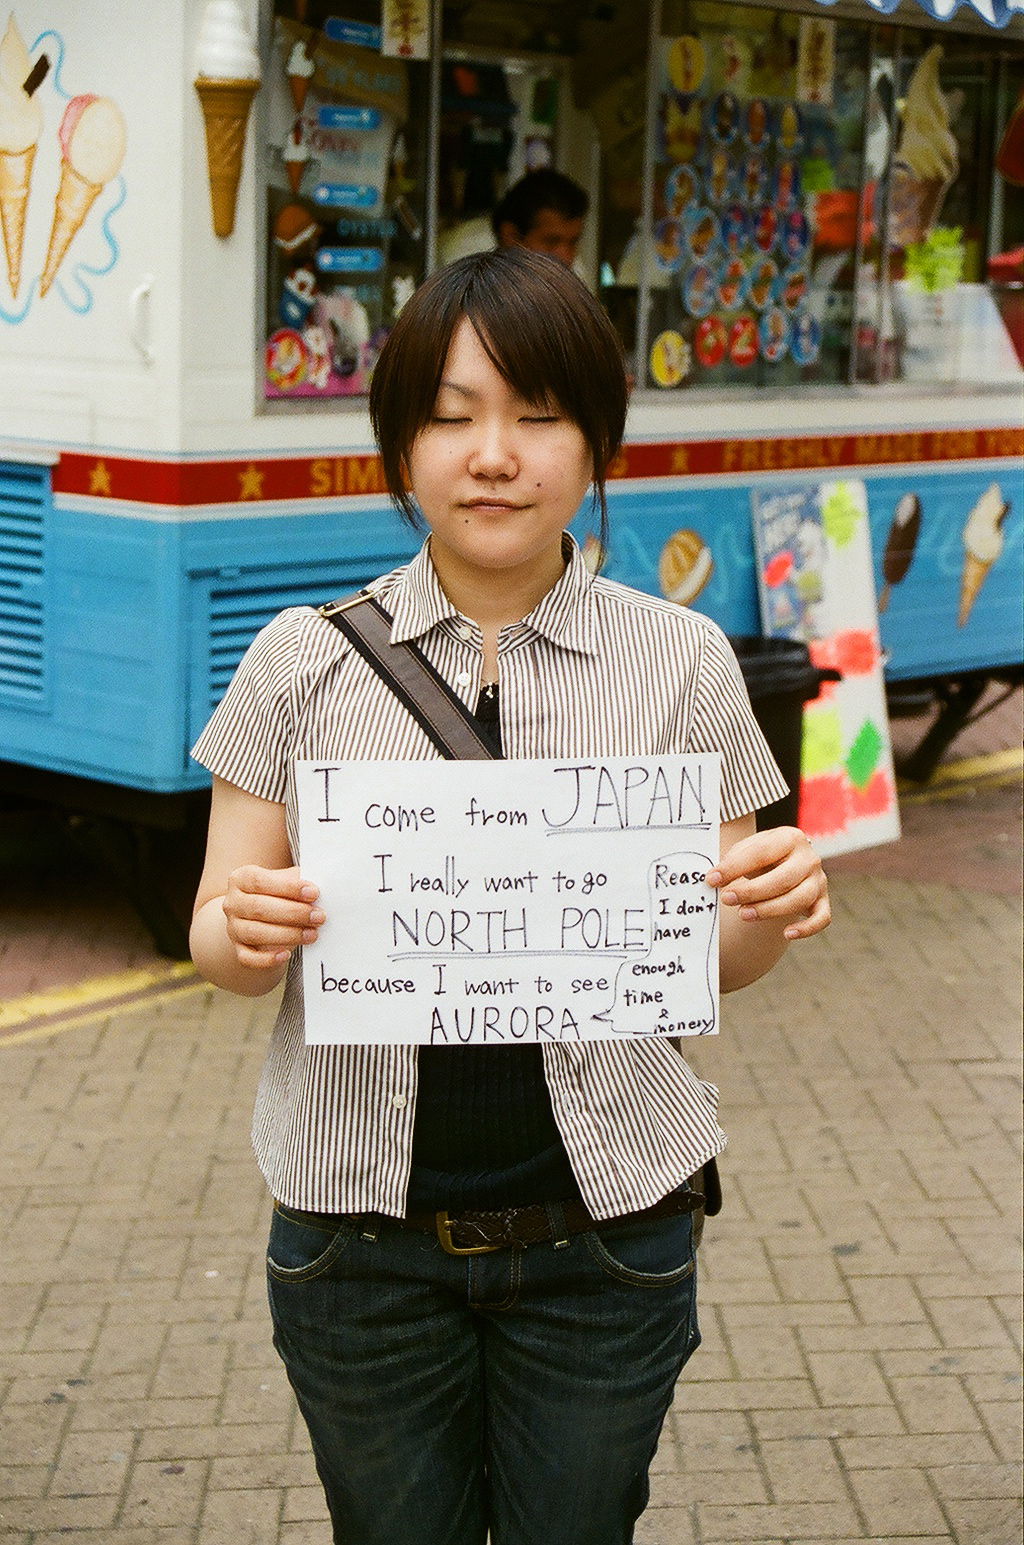 OYSTER
SIM
S
FRESHLY MADE FOR YOU
I come from JAPAN
I really want to go
NORTH POLE
because I want to see
AURORA
Reaso
I don't
have
enough
time
&
monery